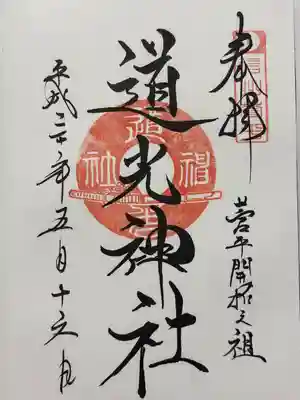 奉拝
菅平開拓之祖
道光神社
平成三十年五月十六日